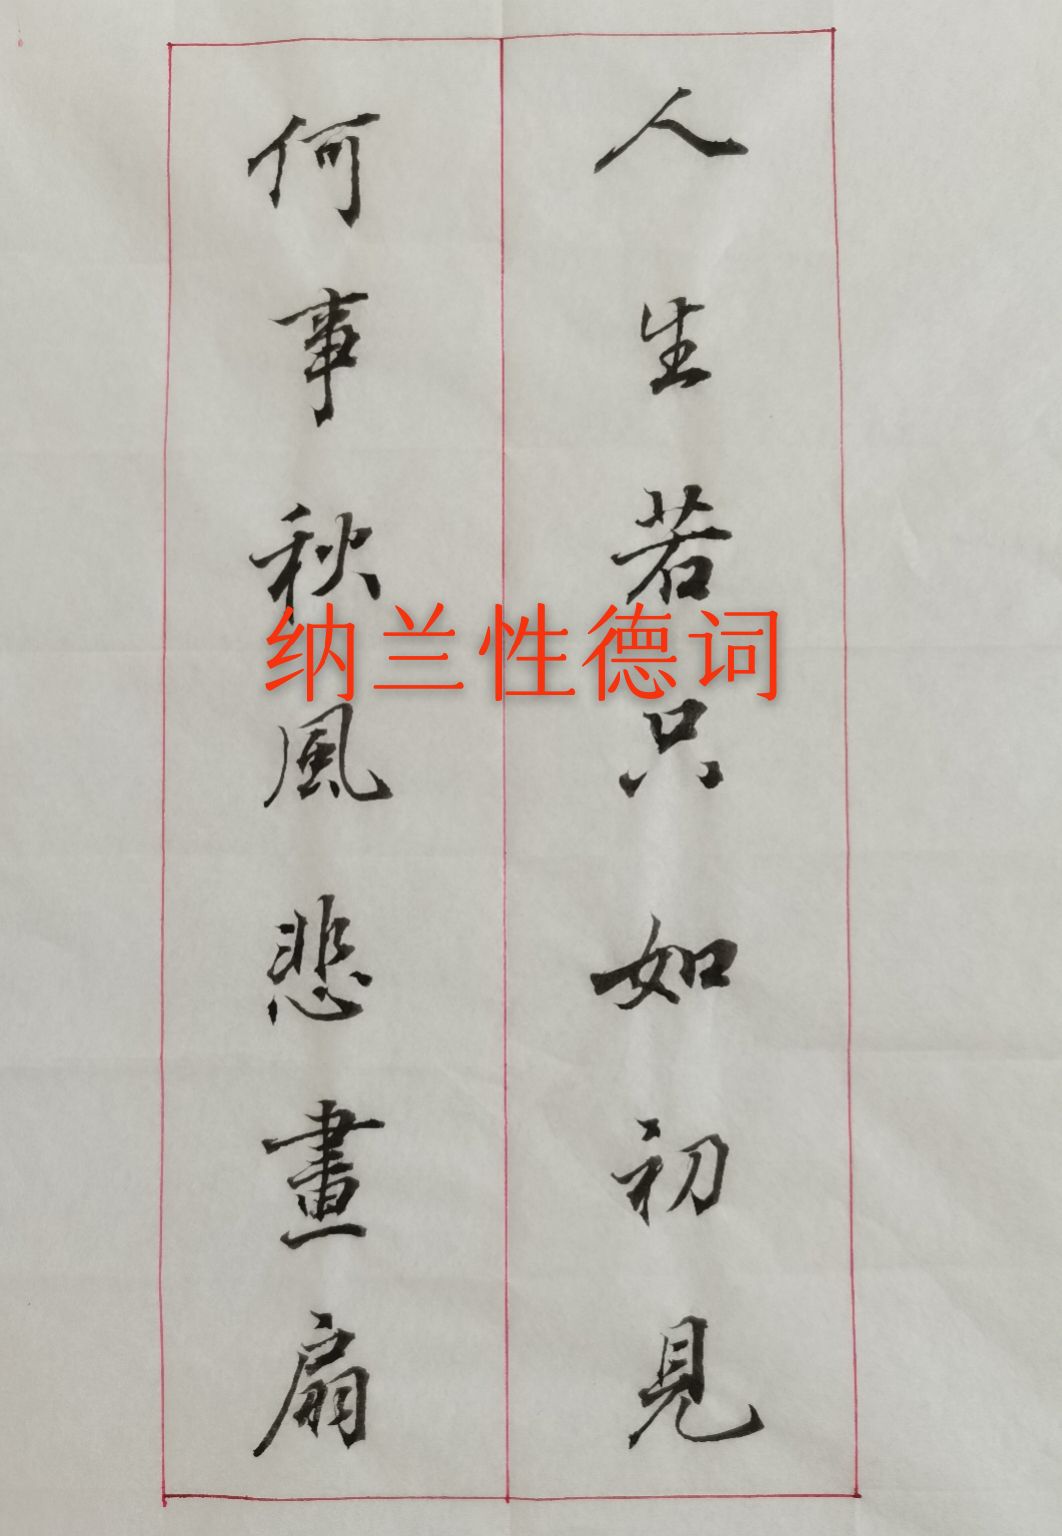 人生若只如初見
何事秋風悲畫扇
纳兰性德词